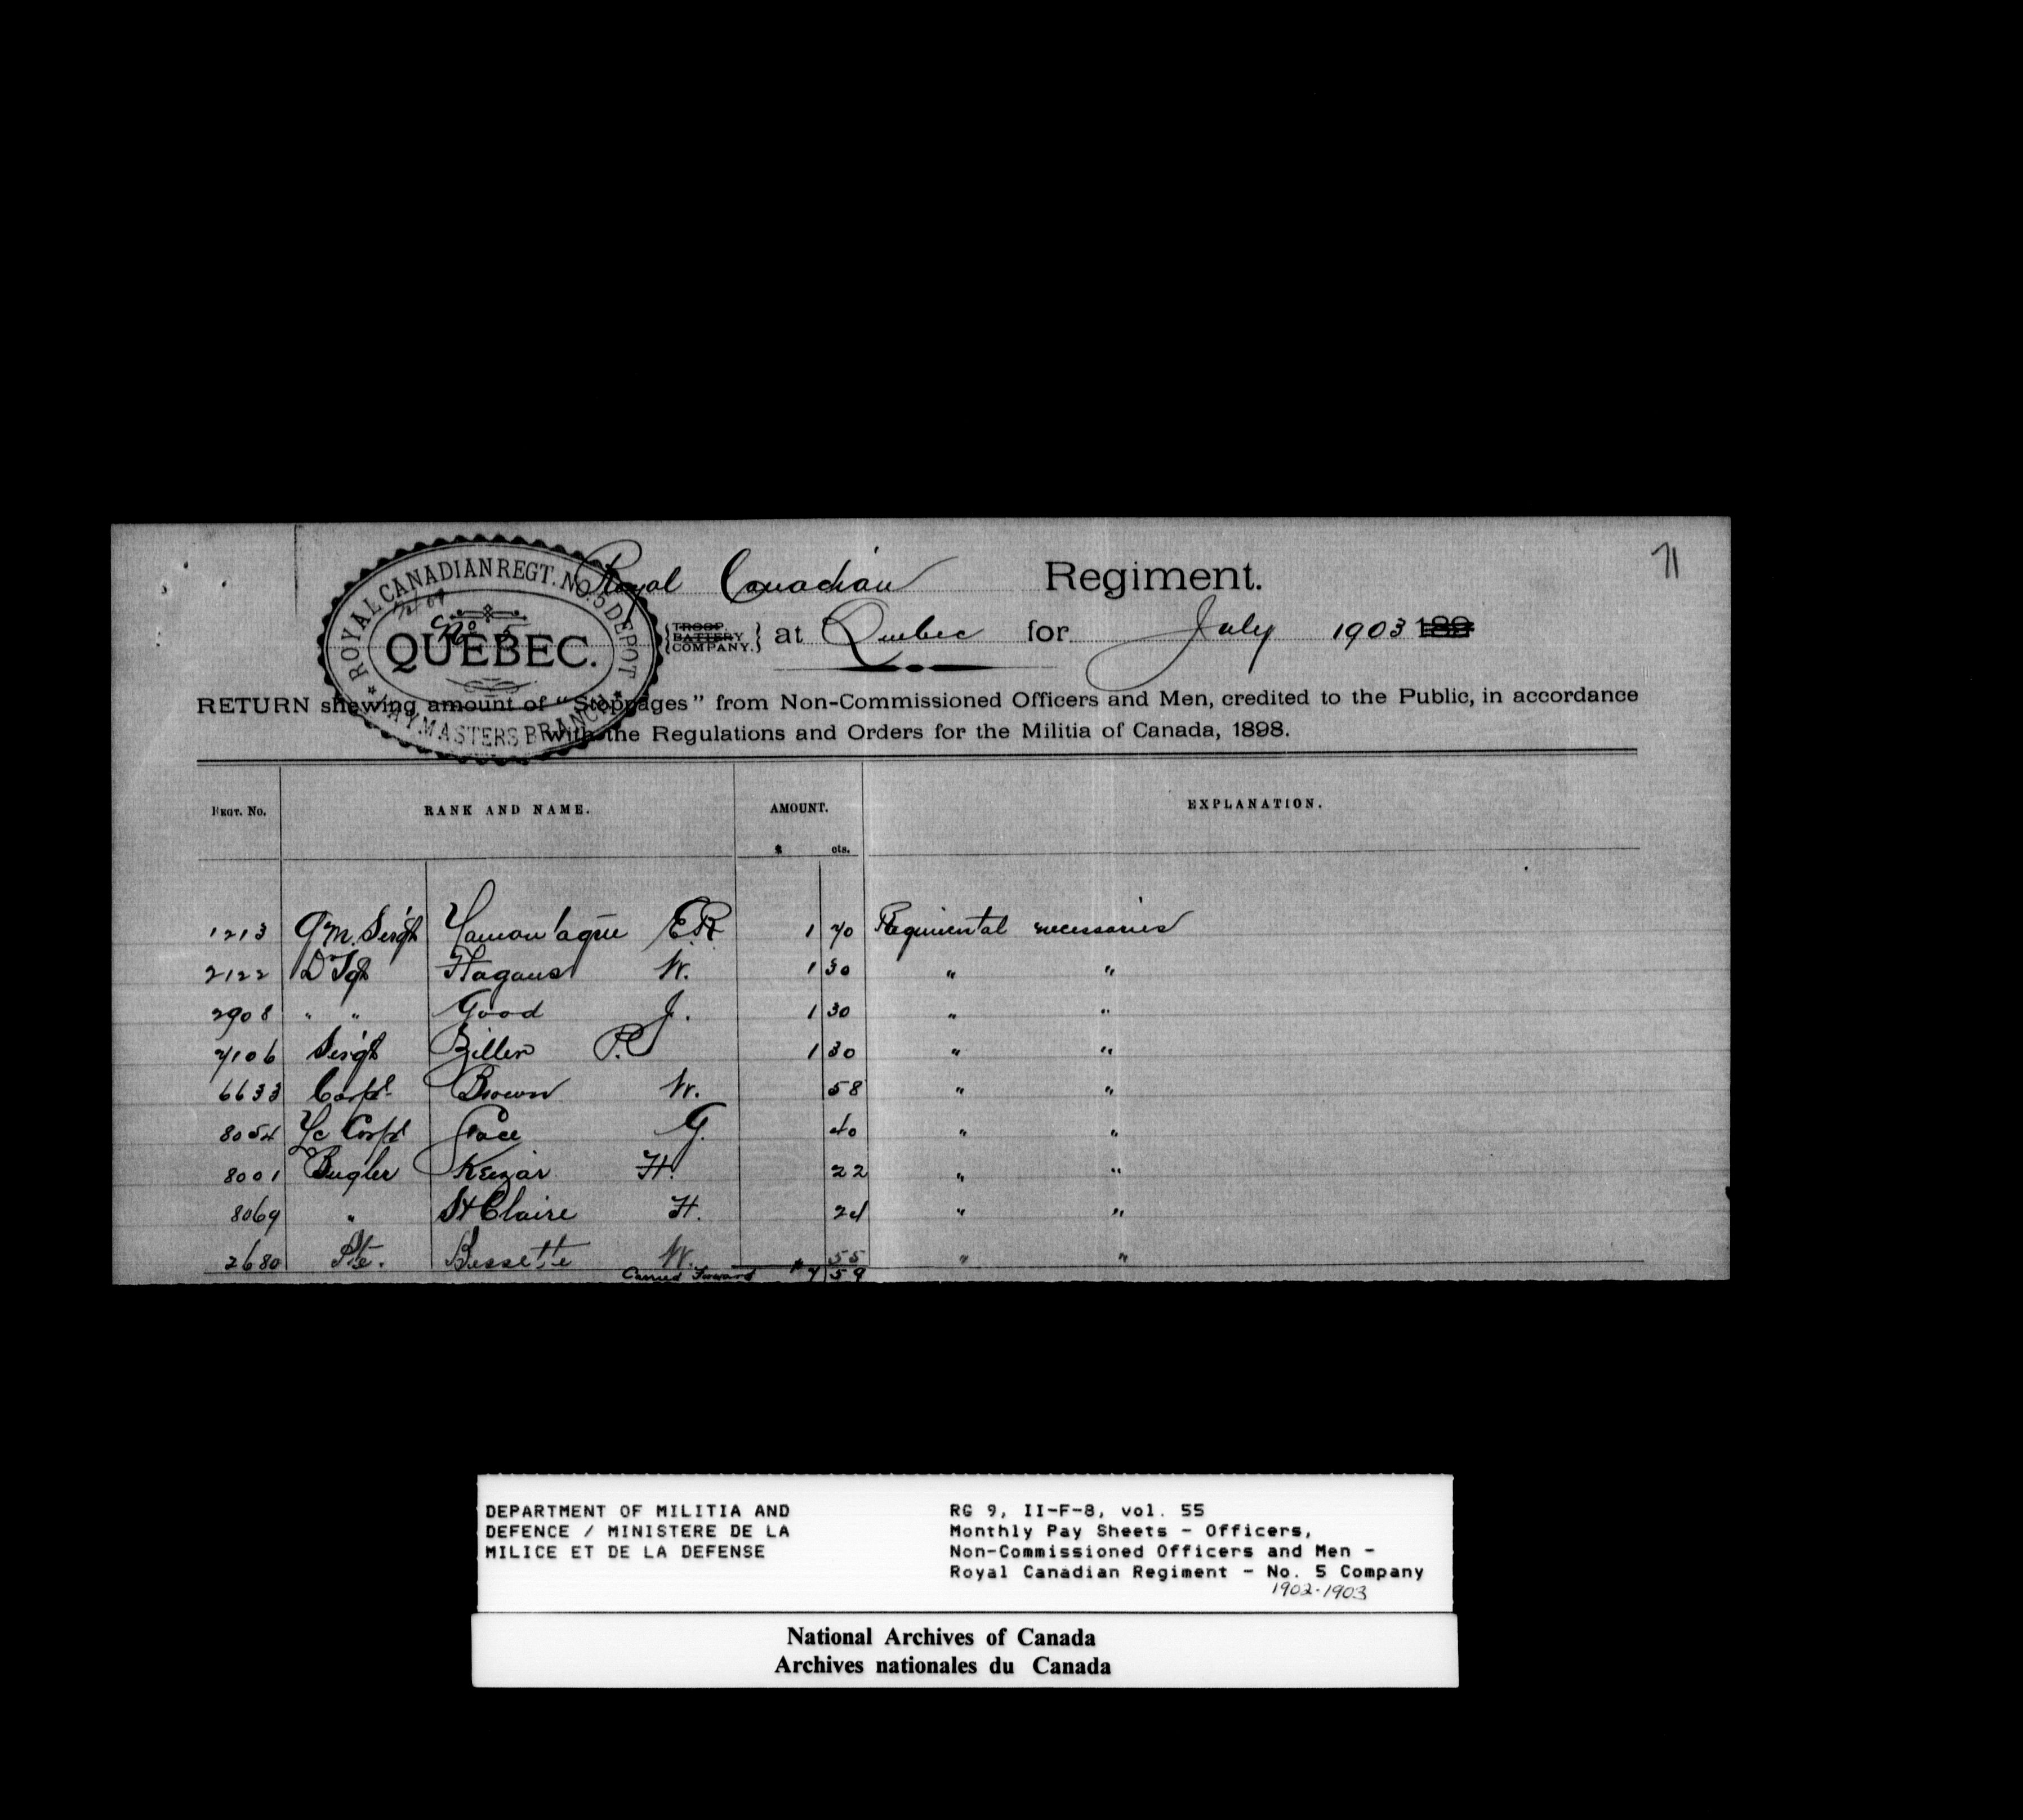 ROYAL CANADIAN REGT. NO. 5 DEPOT
QUEBEC.
PAYMASTERS BRANCH
71
Royal Canadian Regiment.
No 5 {TROOP. BATTERY COMPANY.} at Quebec for July 1903 189
RETURN shewing amount of "Stoppages" from Non-Commissioned Officers and Men, credited to the Public, in accordance
with the Regulations and Orders for the Militia of Canada, 1898.
REGT. No. RANK AND NAME. AMOUNT. EXPLANATION.
$ cts.
1213 Qm. Sergt E.R. 1 70 Regimental necessaries
2122 Hagans W. 1 30 " "
2908 " " Good J. 1 30 " "
7106 Sergt Ziller P. 1 30 " "
6633 Corpl Brown W. 58 " "
8054 L/c Corpl Pace G. 40 " "
8001 Bugler Keezar H. 22 " "
8069 " St Claire H. 24 " "
2680 Pte. Bessette W. 55 " "
Carried Forward $ 7 59
DEPARTMENT OF MILITIA AND
DEFENCE / MINISTERE DE LA
MILICE ET DE LA DEFENSE
RG 9, II-F-8, vol. 55
Monthly Pay Sheets - Officers,
Non-Commissioned Officers and Men -
Royal Canadian Regiment - No. 5 Company
1902-1903
National Archives of Canada
Archives nationales du Canada